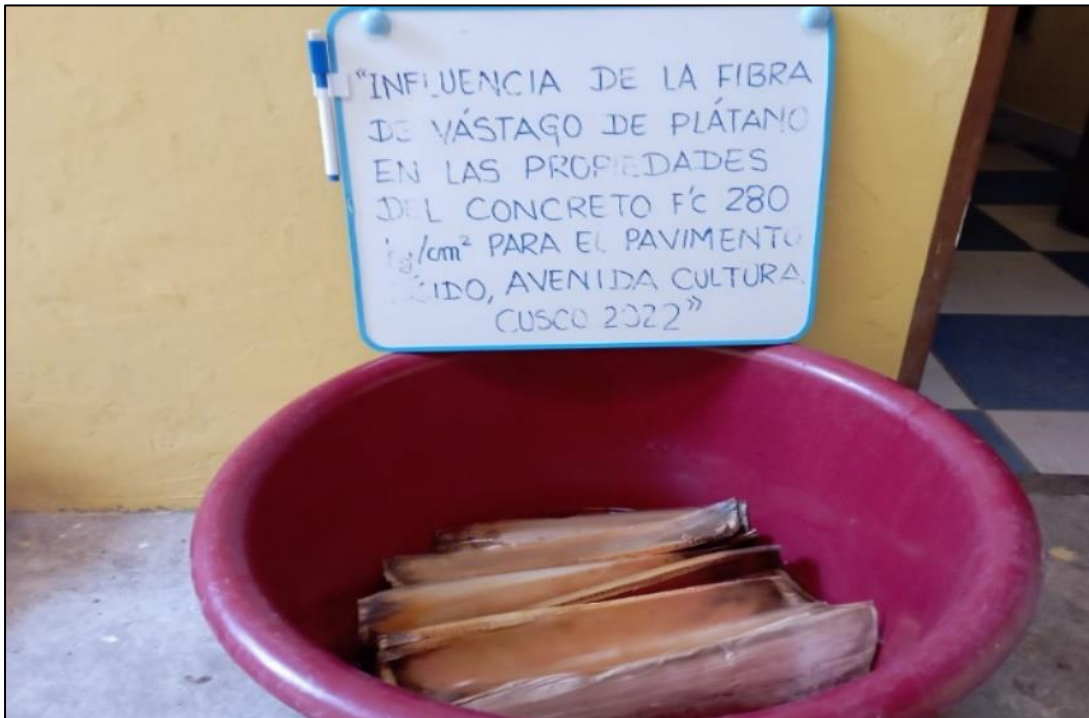 "INFLUENCIA DE LA FIBRA
DE VÁSTAGO DE PLÁTANO
EN LAS PROPIEDADES
DEL CONCRETO F'C 280
kg/cm² PARA EL PAVIMENTO
AVENIDA CULTURA
CUSCO 2022"